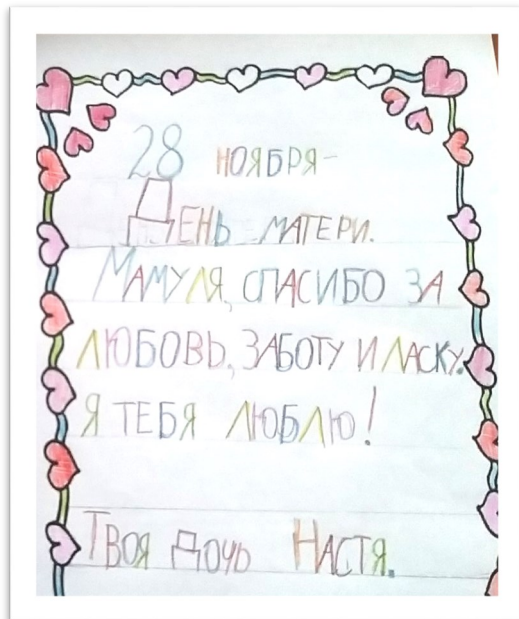 28 НОЯБРЯ-
ДЕНЬ МАТЕРИ.
МАМУЛЯ, СПАСИБО ЗА
ЛЮБОВЬ, ЗАБОТУ И ЛАСКУ.
Я ТЕБЯ ЛЮБЛЮ!
ТВОЯ ДОЧЬ НАСТЯ.